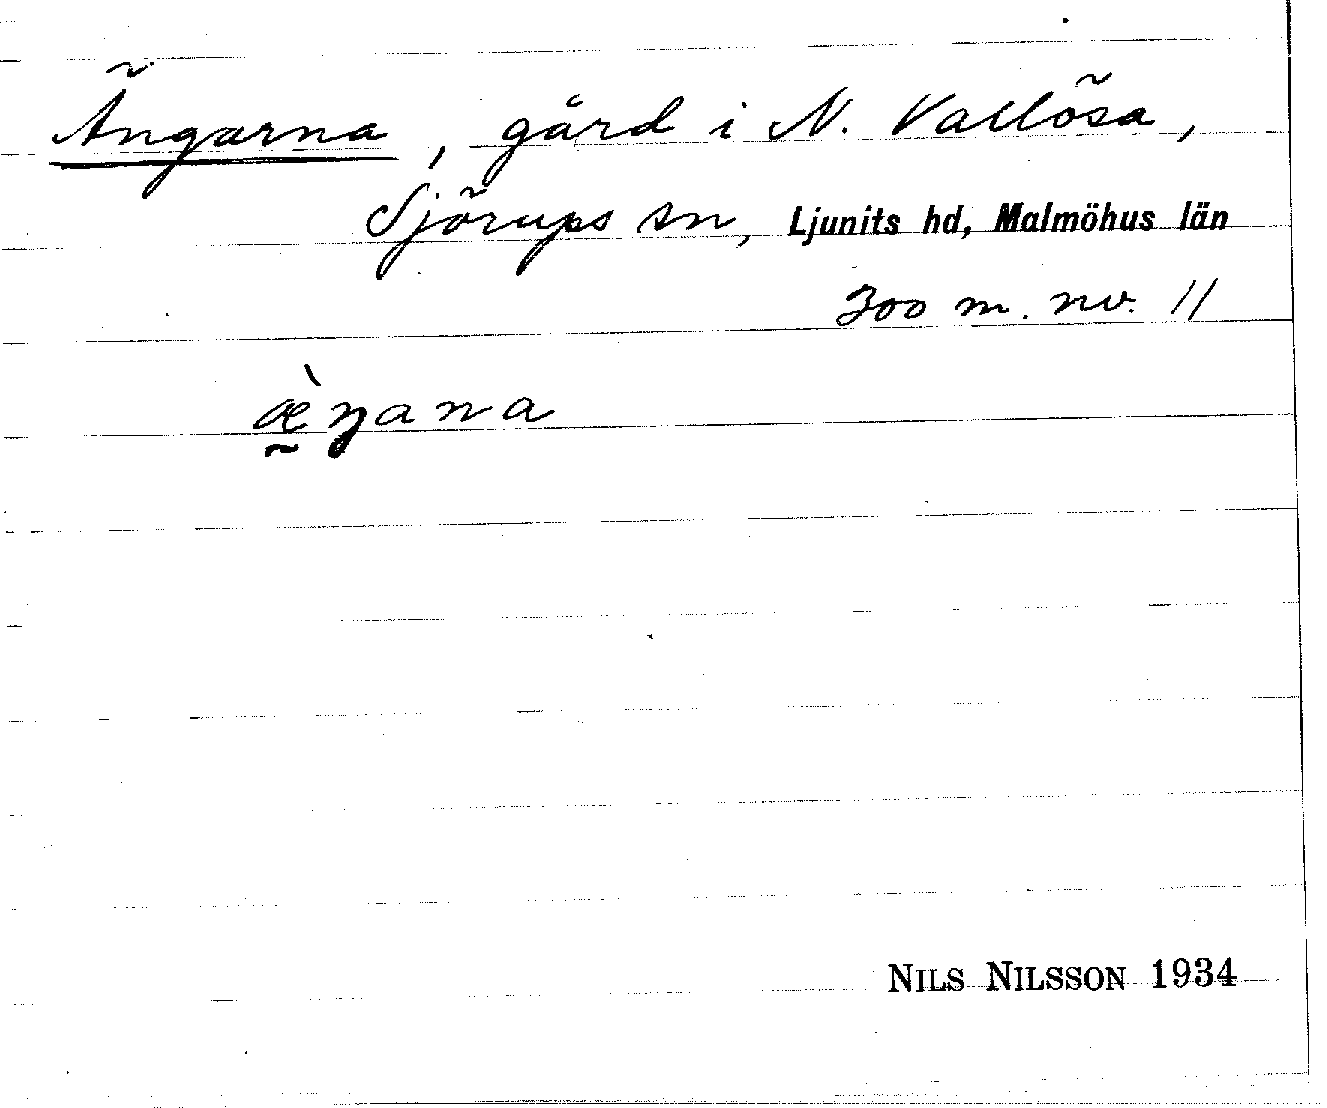 Ängarna, gård i N. Vallösa,
Sjörups sn, Ljunits hd, Malmöhus län
300 m. nv. 11
æ̰̀ŋana
NILS NILSSON 1934